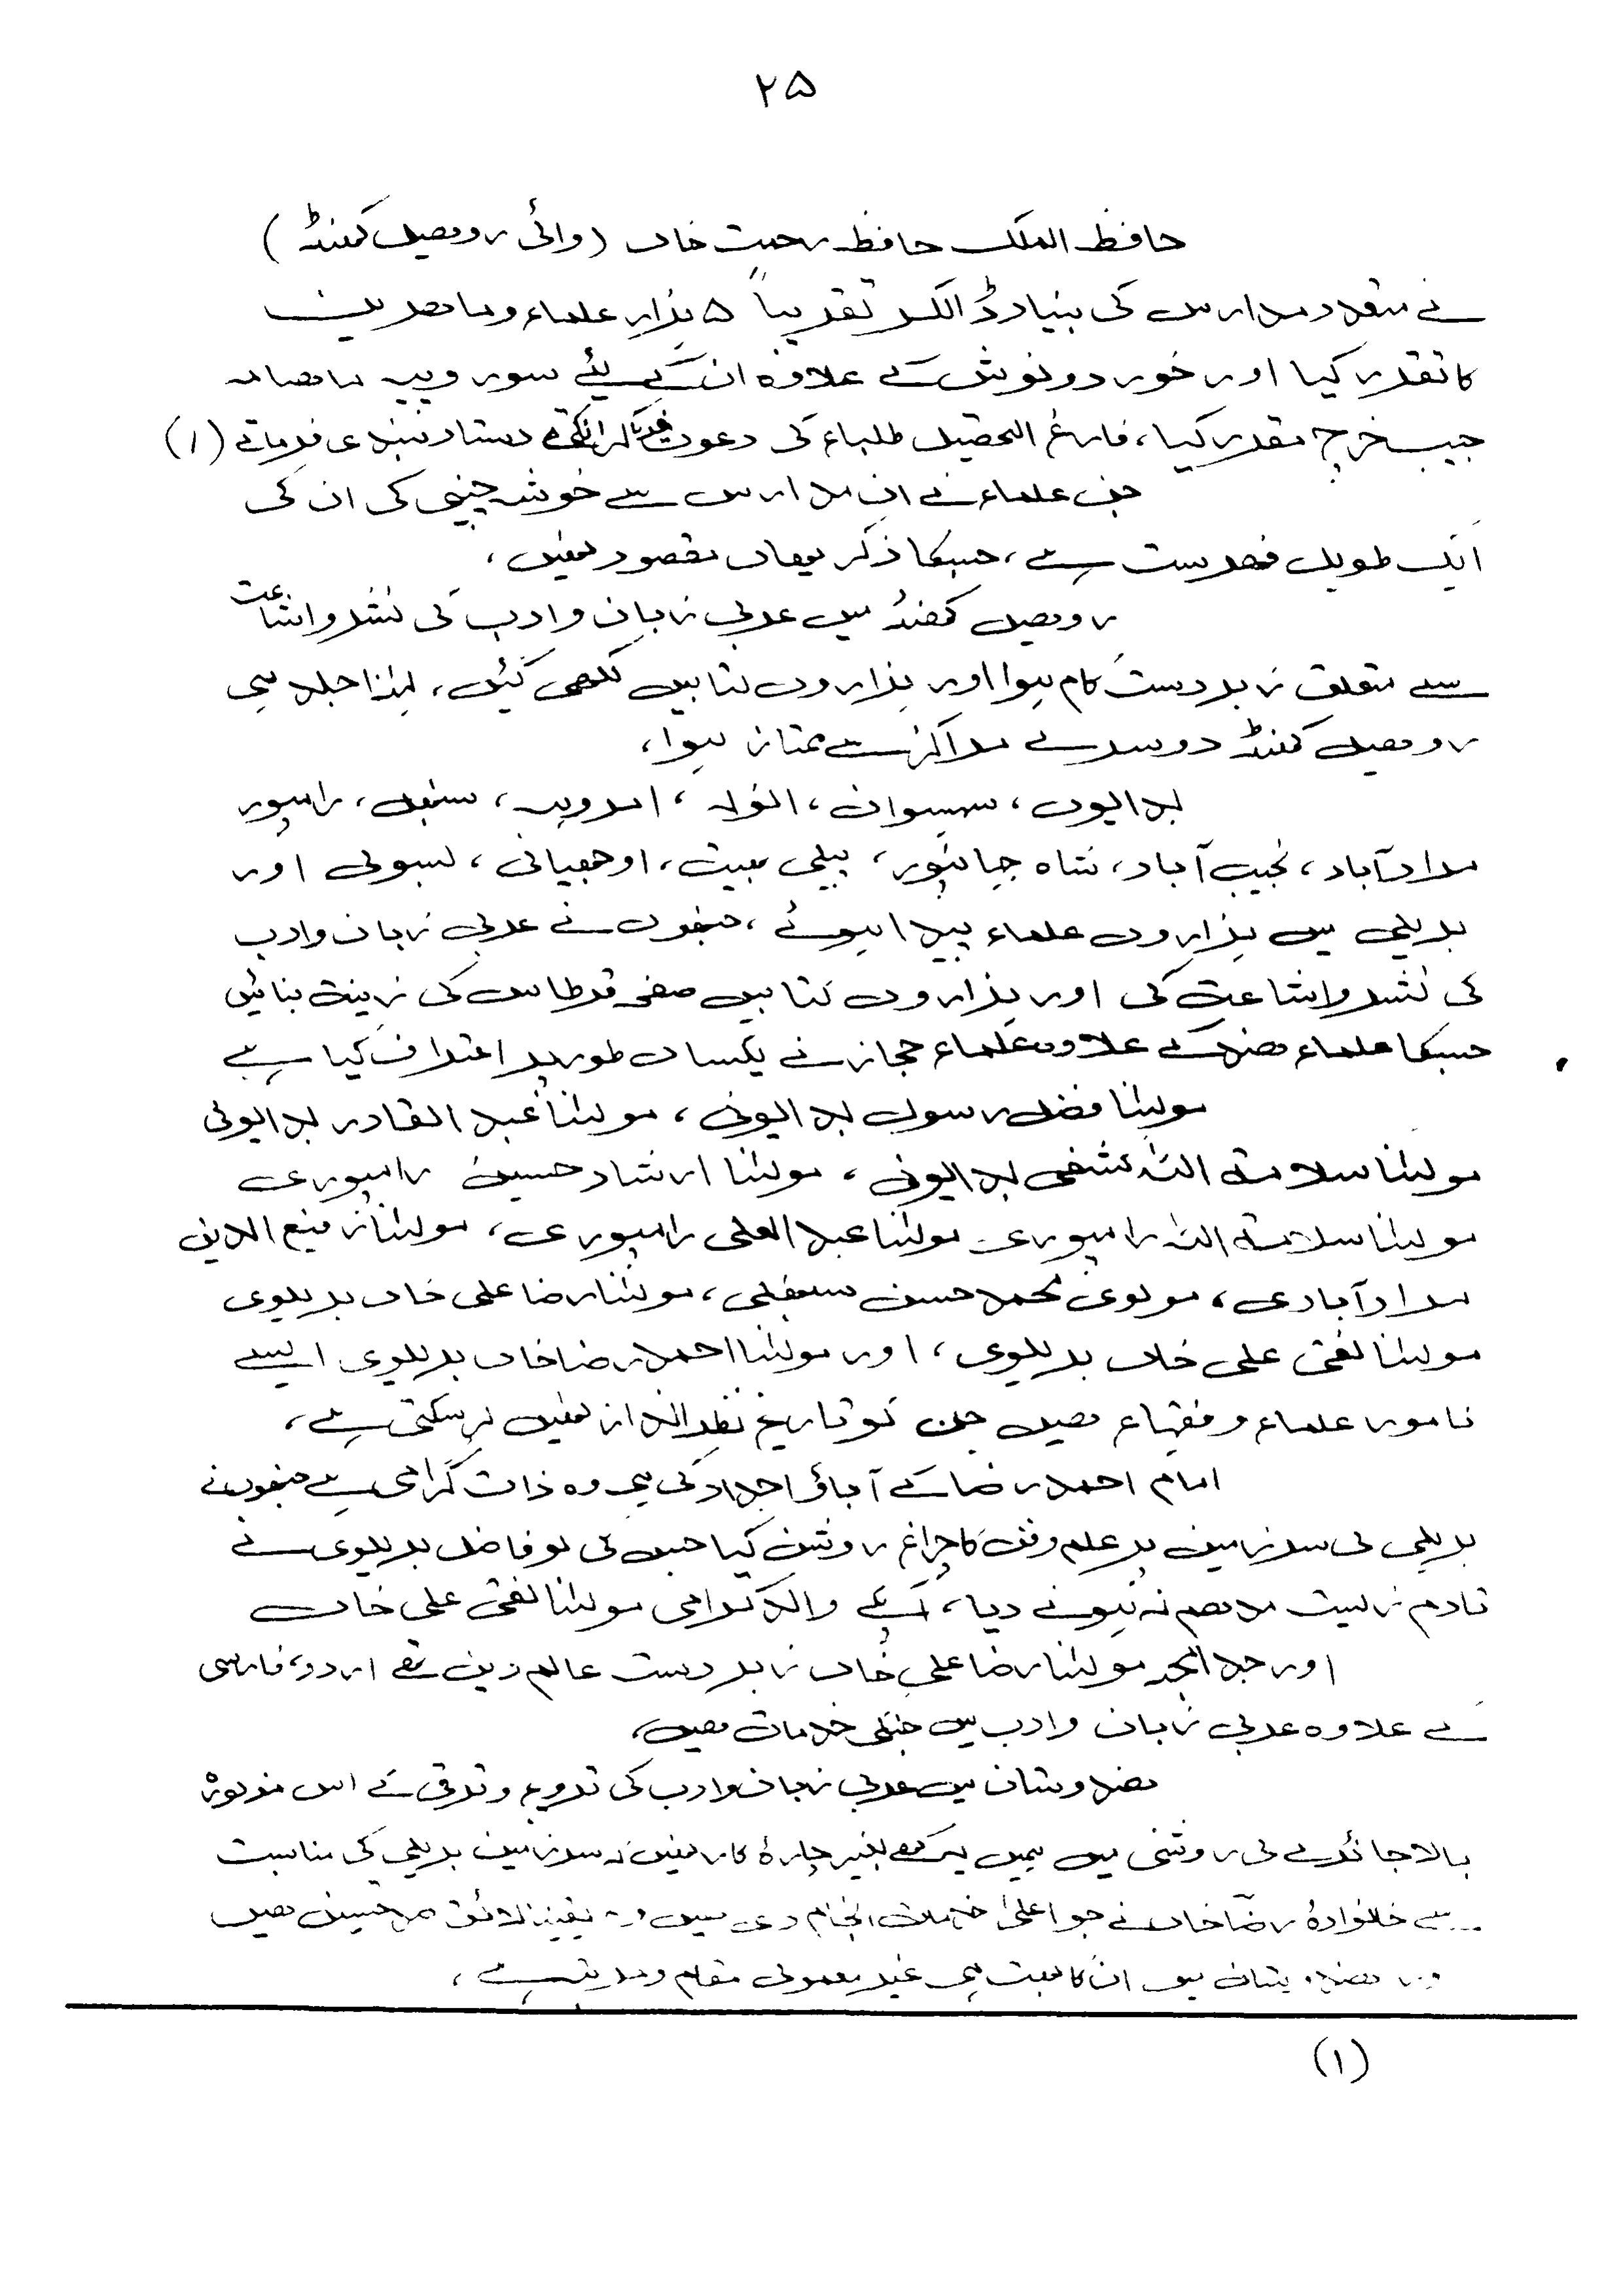 ۲۵
حافظ الملک حافظ رحمت خاں (وائی روھیل کھنڈ)
نے متعدد مدارس کی بنیاد ڈالکر تقریباً ۵ ہزار علماء وماھرین
کا تقرر کیا اور خورد و نوش کے علاوہ ان کے لئے سو روپیہ ماھانہ
جیب خرچ مقرر کیا، فارغ التحصیل طلباء کی دعوت دستار بندی فرماتے (۱)
جن علماء نے ان مدارس سے خوشہ چینی کی ان کی
ایک طویل فھرست ہے، جسکا ذکر یھاں مقصود نھیں،
روھیل کھنڈ میں عربی زبان و ادب کی نشر و اشاعت
سے متعلق زبردست کام ہوا اور ہزاروں کتابیں لکھی گئیں، لہٰذا جلد ہی
روھیل کھنڈ دوسرے مراکز سے ممتاز ہوا،
بدایوں، سہسوان، انولہ، امروہہ، سنبھل، رامپور
مرادآباد، نجیب آباد، شاہ جہانپور، پیلی بھیت، اوجھیانی، بسولی اور
بریلی میں ہزاروں علماء پیدا ہوئے، جنھوں نے عربی زبان و ادب
کی نشر و اشاعت کی اور ہزاروں کتابیں صفحہ قرطاس کی زینت بنائیں
جسکا علماء ھند کے علاوہ علماء حجاز نے یکساں طور پر اعتراف کیا ہے
مولٰنا فضل رسول بدایونی، مولٰنا عبد القادر بدایونی
مولٰنا سلامت اللہ کشفی بدایونی، مولٰنا ارشاد حسین رامپوری
مولٰنا سلامت اللہ رامپوری مولٰنا عبد العلی رامپوری، مولٰنا رفیع الدین
مرادآبادی، مولوی محمد حسن سنبھلی، مولٰنا رضا علی خاں بریلوی
مولٰنا نقی علی خاں بریلوی، اور مولٰنا احمد رضا خاں بریلوی ایسے
نامور علماء و فقہاء ھیں جن کو تاریخ نظر انداز نھیں کر سکتی ہے،
امام احمد رضا کے آباؤ اجداد کی ہی وہ ذات گرامی ہے جنھوں نے
بریلی کی سرزمین پر علم و فن کا چراغ روشن کیا جس کی لو فاضل بریلوی نے
تادم زیست مدھم نہ ہونے دیا، آپکے والد گرامی مولٰنا نقی علی خاں
اور جد امجد مولٰنا رضا علی خاں زبردست عالم دین تھے اردو، فارسی
کے علاوہ عربی زبان و ادب میں جنکی خدمات ھیں،
ھندوستان میں عربی زبان و ادب کی ترویج و ترقی کے اس مذکورہ
بالا جائزے کی روشنی میں ہمیں یہ کھے بغیر چارۂ کار نھیں کہ سرزمین بریلی کی مناسبت
سے خانوادۂ رضا خاں نے جو اعلیٰ خدمات انجام دی ہیں وہ یقیناً لائق صد تحسین ھیں
اور ھندوستان میں ان کا بہت ہی غیر معمولی مقام و مرتبہ ہے،
(۱)